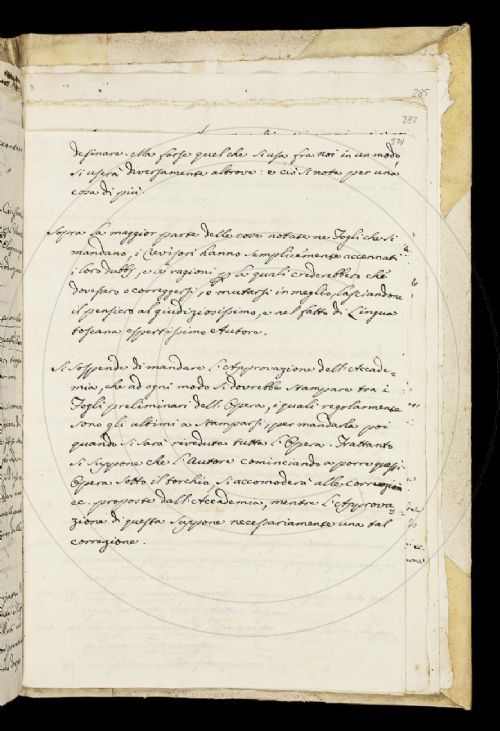 285
282
desinare. Ma forse quel che si usa fra noi in un modo
si userà diversamente altrove: e ciò si nota per una
cosa di più.
Sopra la maggior parte delle cose notate ne Fogli che si
mandano, i Revisori hanno semplicemente accennati
i loro dubbj, e le ragioni p le quali crederebbero che
dovessero o correggersi, o mutarsi in meglio, lasciandone
il pensiero al giudiziosissimo, e nel fatto di Lingua
toscana espertissimo Autore.
Si sospende di mandare l'Approvazione dell'Accade-
mia, che ad ogni modo si dovrebbe stampare tra i
Fogli preliminari dell'Opera, i quali regolarmente
sono gli ultimi a stamparsi, per mandarla poi
quando si sarà riveduta tutta l'Opera. Trattanto
si suppone che l'Autore cominciando a porre questa
Opera sotto il torchio si accomoderà alle correzioni
ec. proposte dall'Accademia, mentre l'Approva
zione di questa suppone necessariamente una tal
correzione.